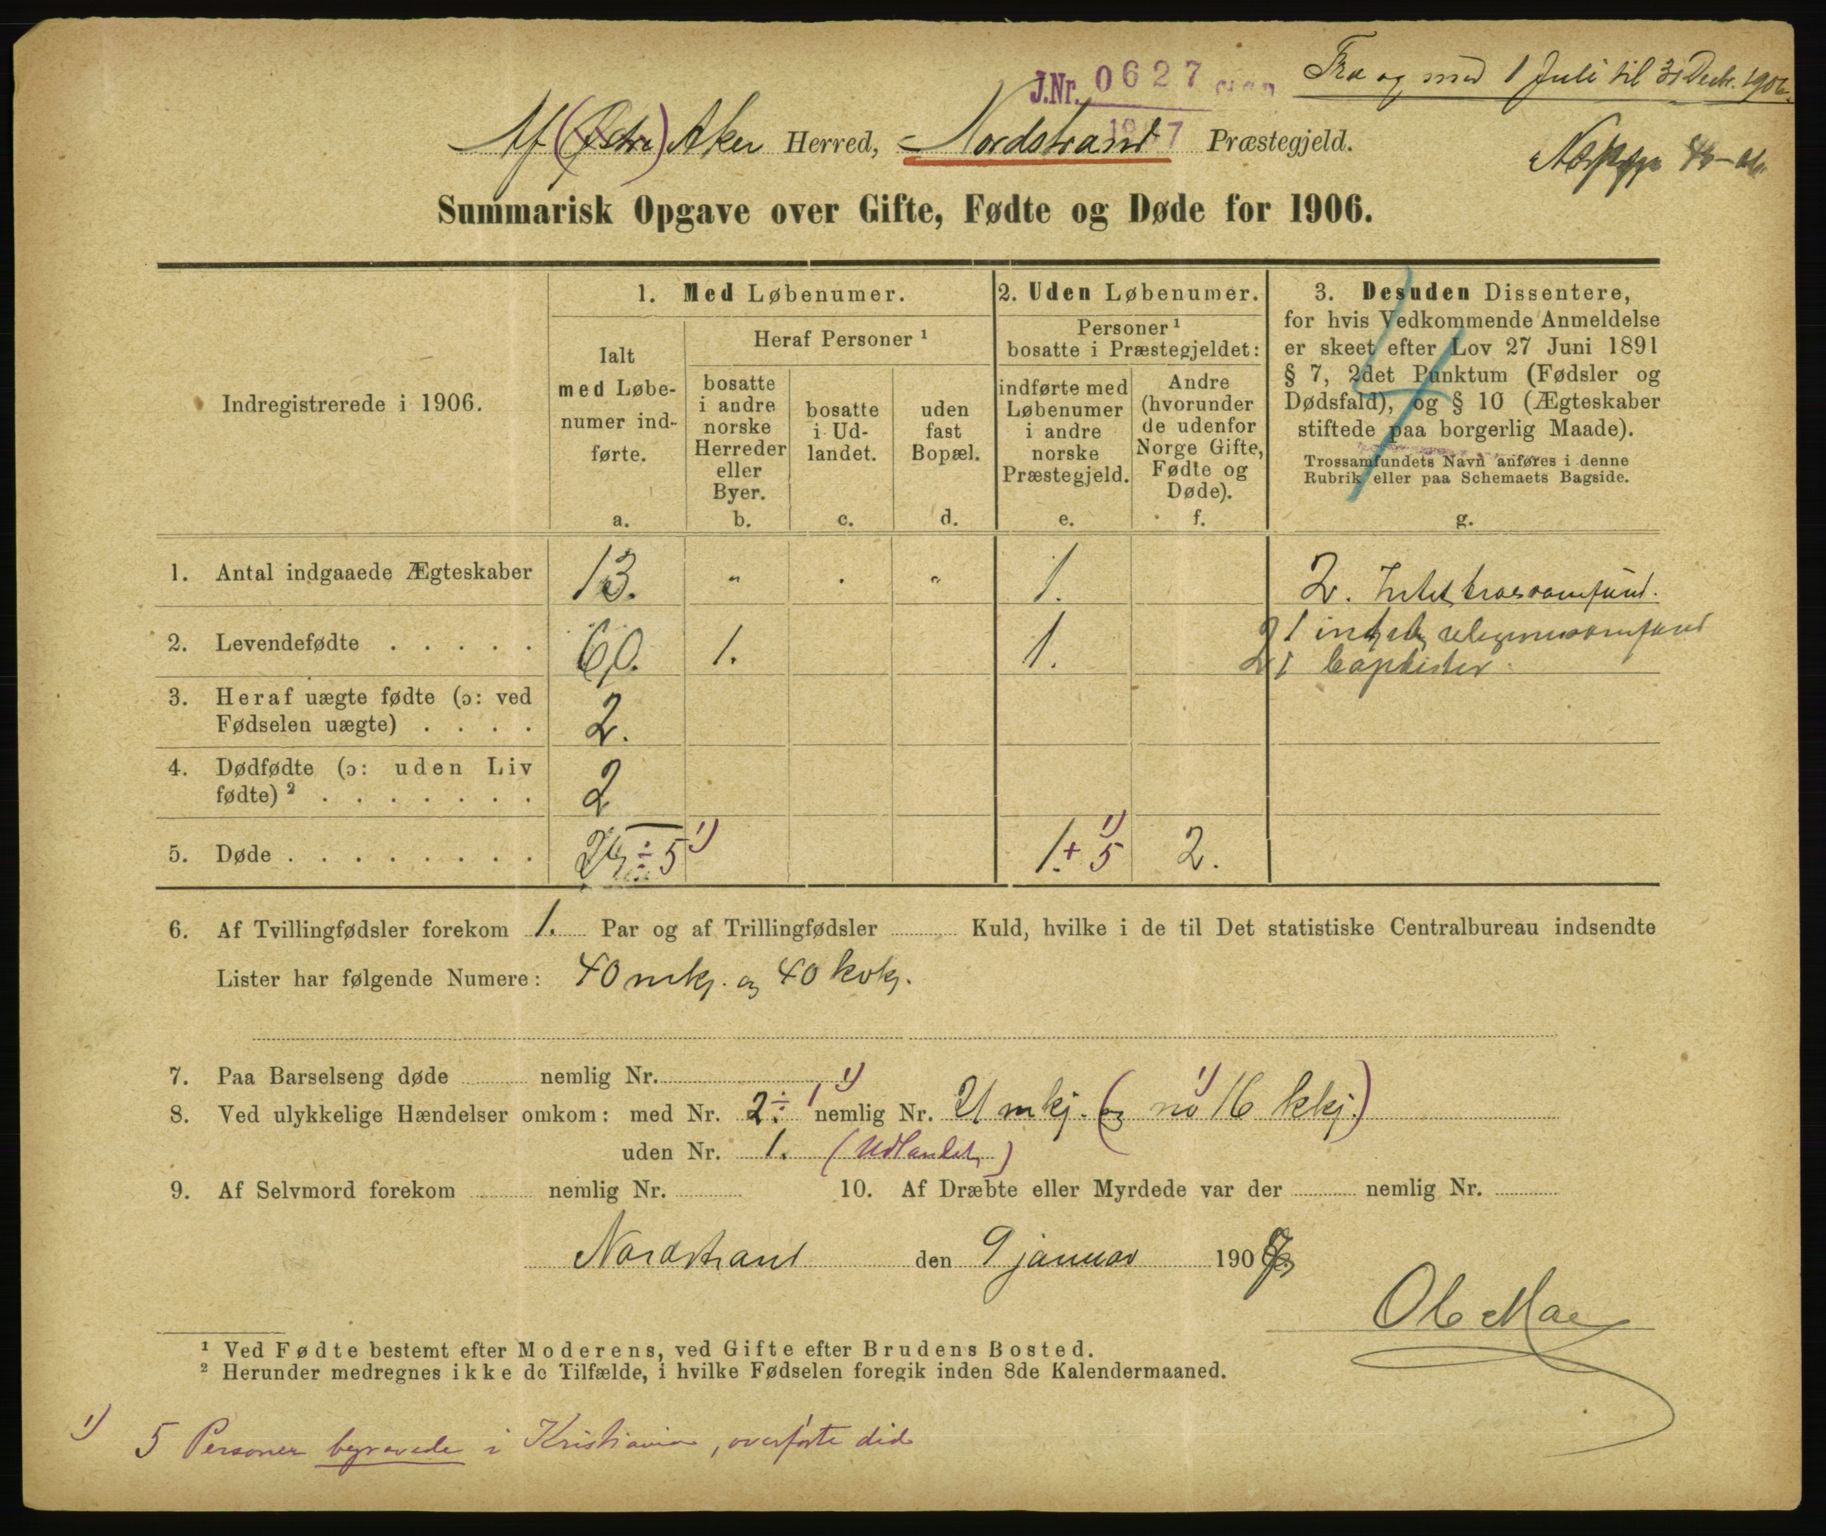 J.Nr. 0627
1907
Fra og med 1 Juli til 31 Decbr. 1906.
Af (Østre) Aker Herred, Nordstrand Præstegjeld.
Summarisk Opgave over Gifte, Fødte og Døde for 1906.
Indregistrerede i 1906.
1. Med Løbenumer.
Ialt
med Løbe-
numer ind-
førte.
a.
Heraf Personer ¹
bosatte
i andre
norske
Herreder
eller
Byer.
b.
bosatte
i Ud-
landet.
c.
uden
fast
Bopæl.
d.
2. Uden Løbenumer.
Personer ¹
bosatte i Præstegjeldet:
indførte med
Løbenumer
i andre
norske
Præstegjeld.
e.
Andre
(hvorunder
de udenfor
Norge Gifte,
Fødte og
Døde).
f.
3. Desuden Dissentere,
for hvis Vedkommende Anmeldelse
er skeet efter Lov 27 Juni 1891
§ 7, 2det Punktum (Fødsler og
Dødsfald), og § 10 (Ægteskaber
stiftede paa borgerlig Maade).
Trossamfundets Navn anføres i denne
Rubrik eller paa Schemaets Bagside.
g.
1. Antal indgaaede Ægteskaber 13. " . " 1. 2. Intet trossamfund.
2. Levendefødte . . . . . 60. 1. 1. 2 1 intet religionssamfund
2 1 baptister.
3. Heraf uægte fødte (ɔ: ved
Fødselen uægte) . . . . 2.
4. Dødfødte (ɔ: uden Liv
fødte) ² . . . . . . . 2
5. Døde . . . . . . . . 26 ÷ 5 ¹) 1. + 5 ¹) 2.
6. Af Tvillingfødsler forekom 1. Par og af Trillingfødsler Kuld, hvilke i de til Det statistiske Centralbureau indsendte
Lister har følgende Numere: 40 mkj. og 40 kvkj.
7. Paa Barselseng døde nemlig Nr.
8. Ved ulykkelige Hændelser omkom: med Nr. 2 ÷ 1 ¹) nemlig Nr. 21 mkj. (og no ¹) 16 kkj.)
uden Nr. 1. (Udlandet)
9. Af Selvmord forekom nemlig Nr. 10. Af Dræbte eller Myrdede var der nemlig Nr.
Nordstrand den 9 januar 1907.
Ole Moe
¹ Ved Fødte bestemt efter Moderens, ved Gifte efter Brudens Bosted.
² Herunder medregnes ikke de Tilfælde, i hvilke Fødselen foregik inden 8de Kalendermaaned.
¹) 5 Personer begravede i Kristiania, overførte did